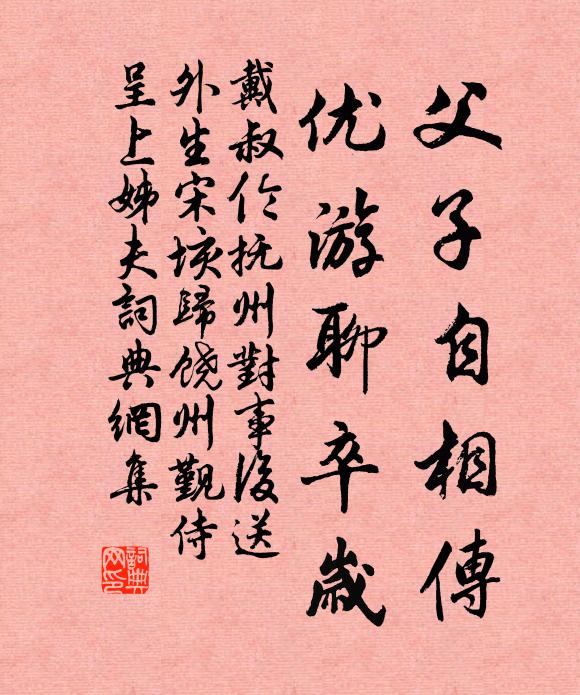 父子自相傳
优游聊卒歲
戴叔伦抚州對事後送
外生宋垓歸饶州覲侍
呈上姊夫詞典網集
詞典
网印